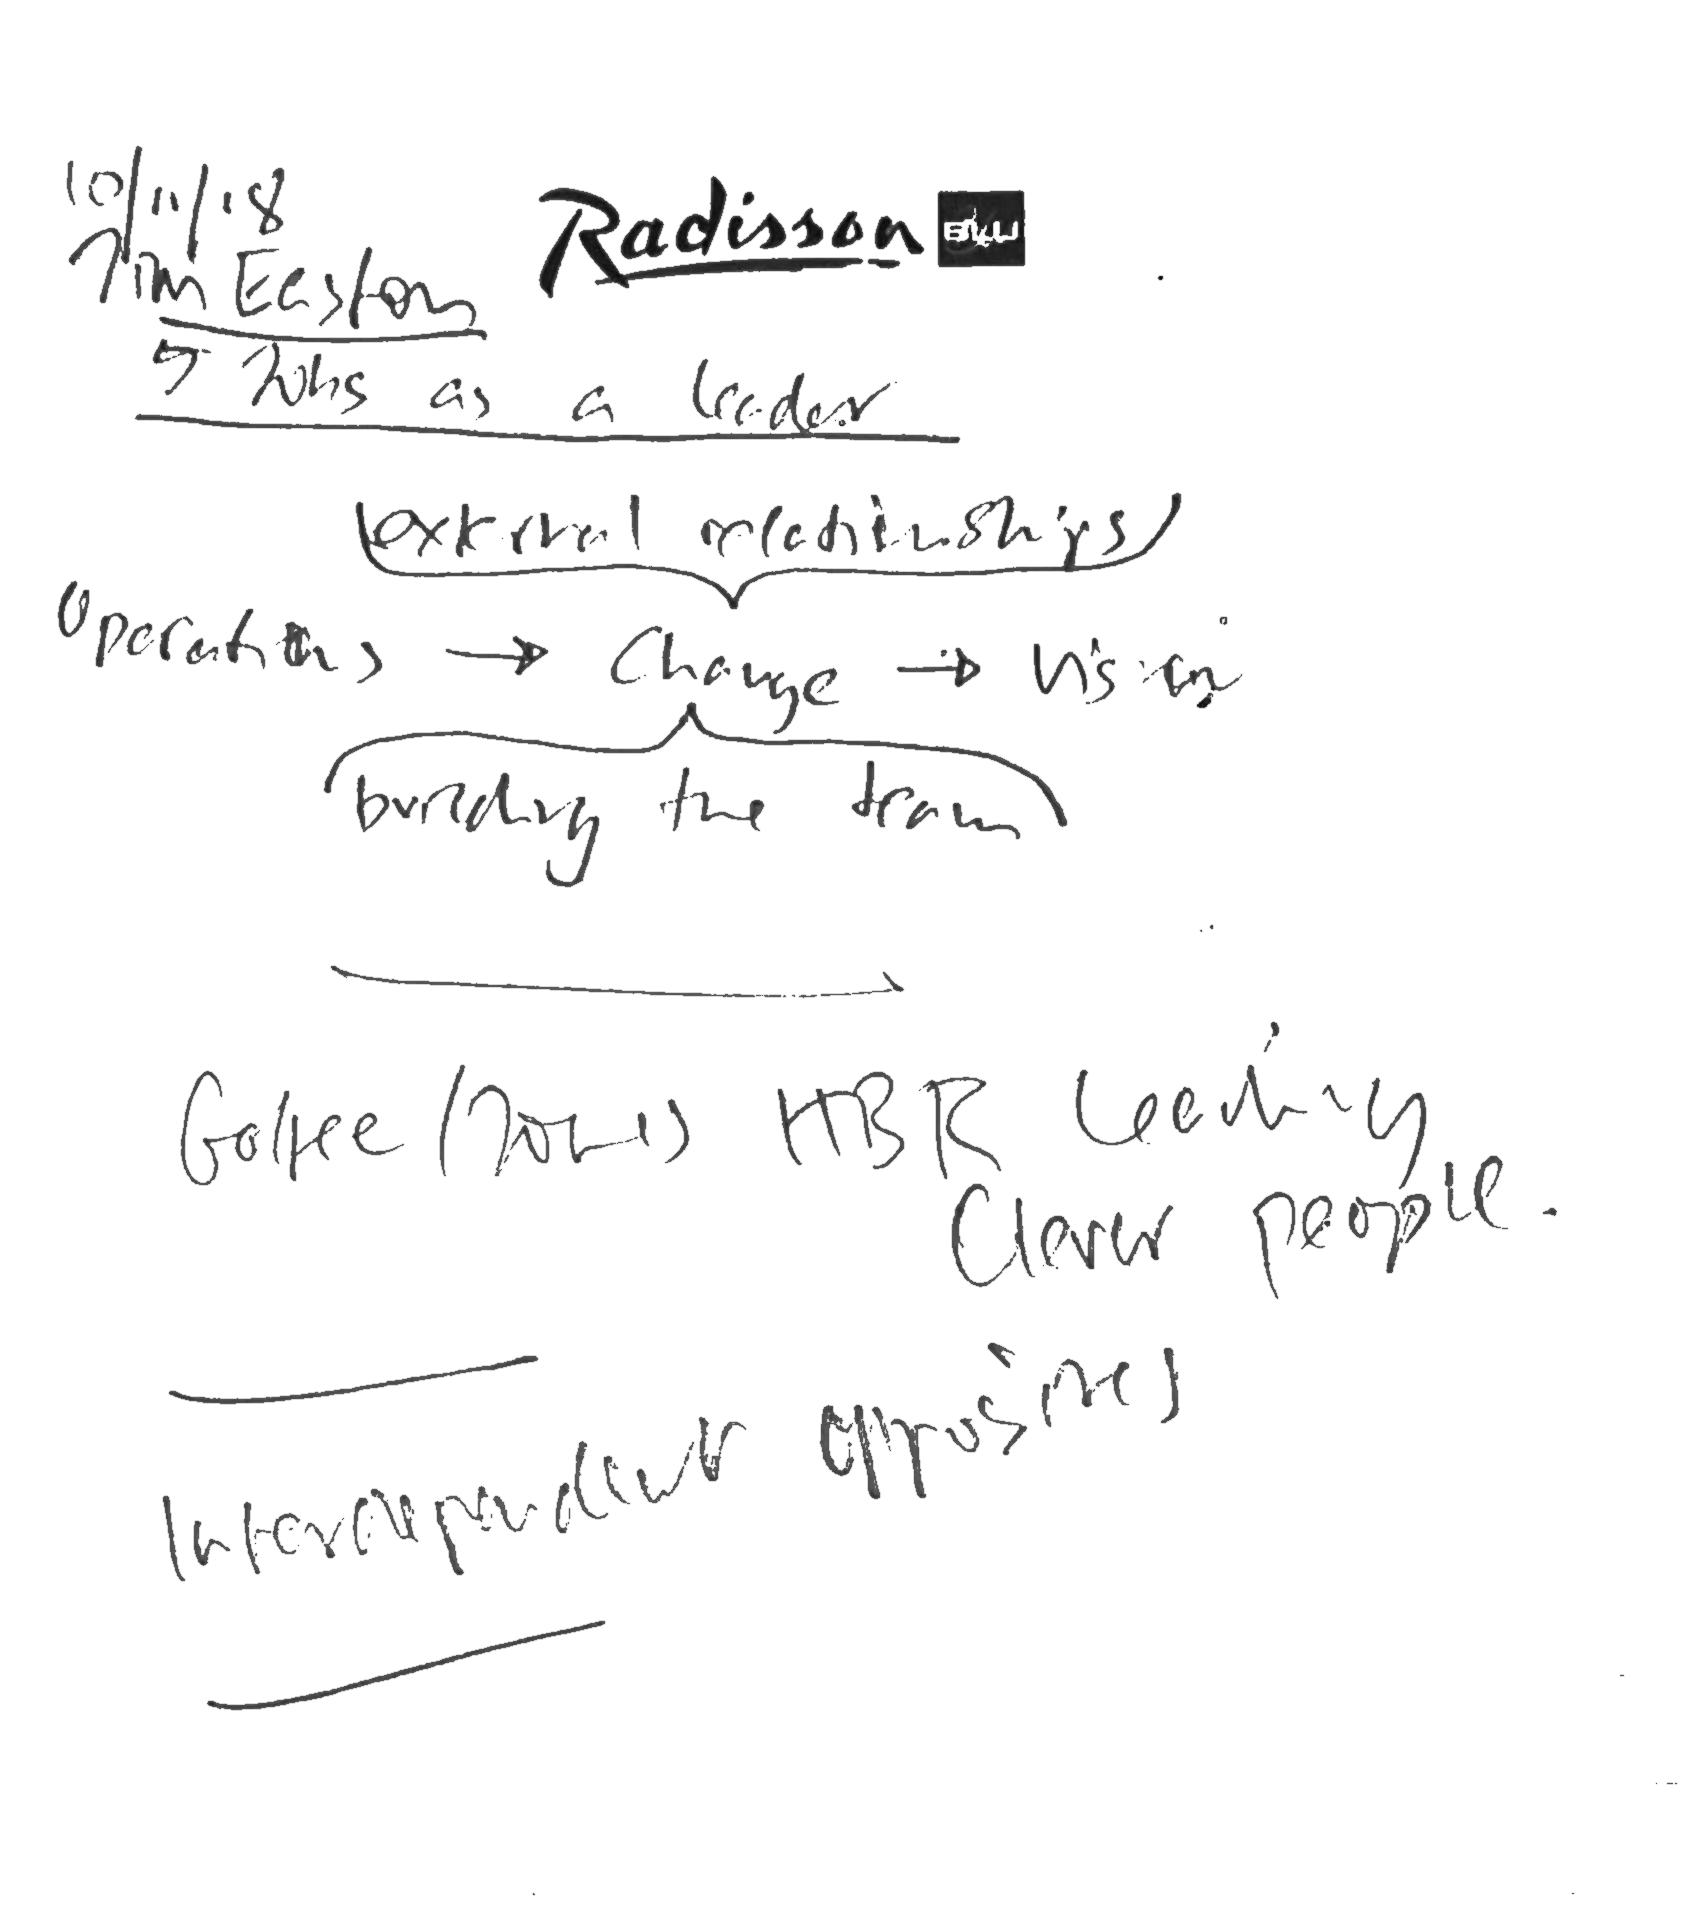 10/11/18
Radisson BLU
Tim Easton
5 Jobs as a leader
external relationships
Operations → Change → Vision
building the team
Goffee / Jones HBR Leading
Clever people.
Interdependent opposites